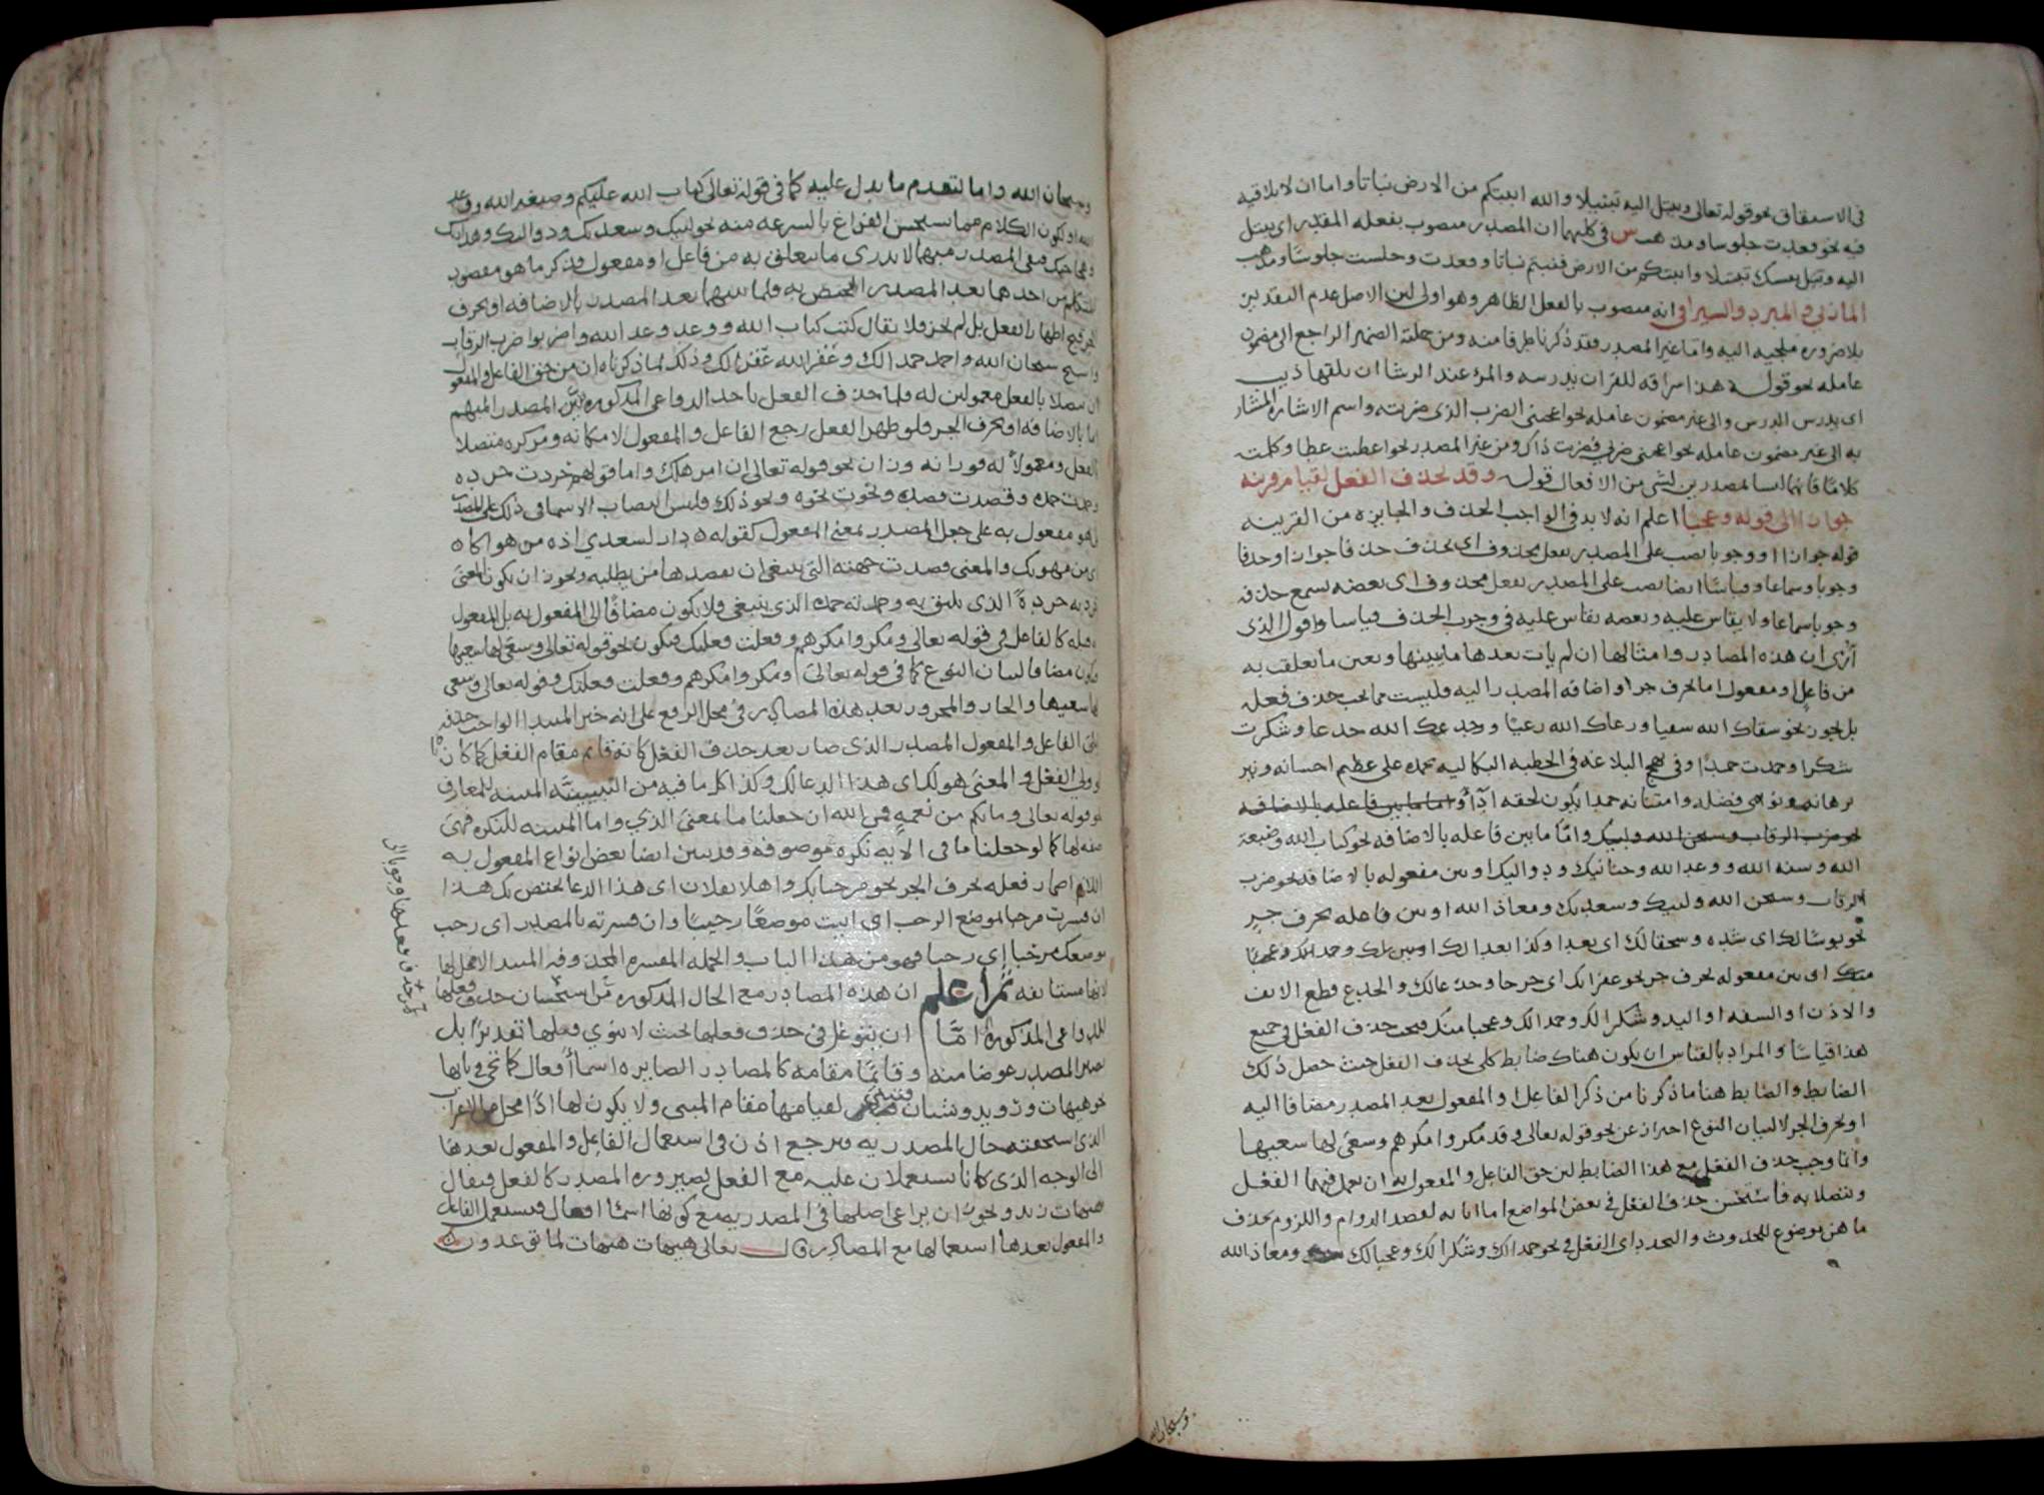 فى الاشتقاق نحو قوله تعالى وتبتل اليه تبتيلا والله انبتكم من الارض نباتا واما ان لا يلاقيه
فيه نحو قعدت جلوسا ومذهب س فى كليهما ان المصدر منصوب بفعله المقدر اى تبتل
اليه وبتل نفسك تبتيلا وانبتكم من الارض فنبتم نباتا وقعدت وجلست جلوسًا ومذهب
المازني والمبرد والسيرافى انه منصوب بالفعل الظاهر وهو اولى لان الاصل عدم التقدير
بلا ضروره ملجيه اليه واما غير المصدر فقد ذكرنا طرفا منه ومن جملته الضمير الراجع الى مضمون
عامله نحو قوله هذا سراقة للقران يدرسه والمرء عند الرشا ان يلقها ذيب
اى يدرس الدرس والى غير مضمون عامله نحو اعجبنى الضرب الذى ضربته واسم الاشاره المشار
به الى غير مضمون عامله نحو اعجبنى ضربى فضربت ذاك ومن غير المصدر نحو اعطيت عطا وكلمته
كلامًا فانهما ليسا مصدرين لشى من الافعال قوله وقد يحذف الفعل لقيام قرينه
جوازا الى قوله وعجبا اعلم انه لا بد فى الواجب الحذف والجايزه من القرينه
قوله جوازا او وجوبا نصب على المصدر بفعل محذوف اى يحذف حذفا جوازا او حذفا
وجوبا وسماعا وقياسًا ايضا نصب على المصدر بفعل محذوف اى بعضه يسمع حذفه
وجوبا سماعا ولا يقاس عليه وبعضه يقاس عليه فى وجوب الحذف قياسا واقول الذى
أرَى ان هذه المصادر وامثالها ان لم يات بعدها ما يبينها ويعين ما تعلقت به
من فاعل او مفعول اما بحرف جر او اضافه المصدر اليه فليست مما يجب حذف فعله
بل يجوز نحو سقاك الله سقيا ورعاك الله رعيًا وجدعك الله جدعا وشكرت
شكرا وحمدت حمدًا وفى نهج البلاغه فى الخطبه البكاليه نحمده على عظيم احسانه ونير
برهانه ونوامى فضله وامتنانه حمدا يكون لحقه اداءً واما ما بين فاعله بالاضافه
نحو ضرب الرقاب وسبحن الله ولبيك وامّا ما بين فاعله بالاضافه نحو كتاب الله وصبغة
الله وسنه الله ووعد الله وحنانيك ودواليك او بين مفعوله بالاضافه نحو ضرب
الرقاب وسبحن الله ولبيك وسعديك ومعاذ الله او بين فاعله بحرف جرٍ
نحو بوسًا لك اى شده وسحقا لك اى بعدا وكذا بعدا لك او بين بك وحمدا لك وعجبًا
منك اى بين مفعوله بحرف جر نحو عقرا لك اى جرحا وجدعا لك والجدع قطع الانف
والاذن او الشفه او اليد وشكرا لك وحمدا لك وعجبا منك فيجب حذف الفعل فى جميع
هذا قياسًا والمراد بالقياس ان يكون هناك ضابط كلى يحذف الفعل حيث حصل ذلك
الضابط والضابط هنا ما ذكرنا من ذكر الفاعل او المفعول بعد المصدر مضافا اليه
او بحرف الجر لا لبيان النوع احتراز عن نحو قوله تعالى وقد مكروا مكرهم وسعى لها سعيها
وانما وجب حذف الفعل مع هذا الضابط لان حق الفاعل والمفعول به ان يعمل فيهما الفعل
ويتصلا به فاستحسن حذف الفعل فى بعض المواضع اما ابانه لقصد الدوام واللزوم بحذف
ما هو موضوع للحدوث والتجدد اى الفعل فى نحو حمدا لك وشكرا لك وعجبا لك ومعاذ الله
وسبحان الله
وسبحان الله واما لتقدم ما يدل عليه كما فى قوله تعالى كتاب الله عليكم وصبغة الله ووعد
الله او يكون الكلام مما يستحسن الفراغ بالسرعه منه نحو لبيك وسعديك ودواليك وهذاذيك
وهجاجيك فبقى المصدر مبهما لا يدرى ما تعلق به من فاعل او مفعول فذكر ما هو مقصود
المتكلم من احدهما بعد المصدر ليختص به فلما بينهما بعد المصدر بالاضافه او بحرف
الجر قبح اظهار الفعل بل لم يجز فلا يقال كتب كتاب الله ووعد وعد الله واضربوا ضرب الرقاب
واسبح سبحان الله واحمد حمدا لك وعقر الله عقرا لك وذلك لما ذكرناه ان من حق الفاعل والمفعول
ان يتصلا بالفعل معمولين له فلما حذف الفعل باحد الدواعى المذكوره وبُيّن المصدر المبهم
اما بالاضافه او بحرف الجر فلو ظهر الفعل رجع الفاعل والمفعول الى مكانه ومركزه متصلا
بالفعل ومعمولاً له فورانه وزان نحو قوله تعالى ان امرؤ هلك واما قولهم حردت حرده
وحمدت حمده وقصدت قصده ونحوت نحوه ونحو ذلك فليس انتصاب الاسما فى ذلك على المصدر
بل هو مفعول به على جعل المصدر بمعنى المفعول كقوله ه دار لسعدى اذه من هواكا ه
اى من مهويك والمعنى قصدت جهته التى ينبغى ان يقصدها من يطلبه ويجوز ان يكون المعنى
حرد به حردةً الذى يليق به وحمدته حمده الذى ينبغى ولا يكون مضافًا الى المفعول به بل المفعول
فيه كالفاعل فى قوله تعالى ومكروا مكرهم وفعلت فعلتك فيكون نحو قوله تعالى وسعى لها سعيها
ويكون مضافا لبيان النوع كما فى قوله تعالى ومكروا مكرهم وفعلت فعلتك وقوله تعالى وسعى
لها سعيها والجار والمجرور بعد هذه المصادر فى محل الرفع على انه خبر المبتدا الواجب حذفه
ليلى الفاعل والمفعول المصدر الذى صار بعد حذف الفعل كانه قائم مقام الفعل كما كان
ولى الفعل والمعنى هو لك اى هذا الدعا لك وكذا كل ما فيه من التبيينيّة المبينه للمعارف
نحو قوله تعالى وما بكم من نعمةٍ فمن الله ان جعلنا ما بمعنى الذى واما المبينه للنكره فهى
صفه لها كما لو جعلنا ما فى الآيه نكره موصوفة وقد يبين ايضا بعض انواع المفعول به
اللازم اضمار فعله بحرف الجر نحو مرحبا بك واهلا بفلان اى هذا الدعا يختص بك هذا
ان فسرت مرحبا بموضع الرحب اى اتيت موضعًا رحيبًا وان فسرته بالمصدر اى رحب
موضعك مرحبا اى رحبا فهو من هذا الباب والجمله المفسره المحذوفه المبتدا لا محل لها
لانها مستانفه ثم اعلم ان هذه المصادر مع الحال المذكوره من استحسان حذف فعلها
للدواعى المذكوره امّا ان يتوغل فى حذف فعلها بحيث لا ينوي فعلها تقديرًا بل
يصير المصدر عوضا منه وقائمًا مقامه كالمصادر الصايره اسماء أفعال كما تجى فى بابها
نحو هيهات ورويد وشتان فتبنى لقيامها مقام المبنى ولا يكون لها اذًا محل من الاعراب
الذى استحقته حال المصدريه فيرجع اذن فى استعمال الفاعل والمفعول بعدها
الى الوجه الذى كانا يستعملان عليه مع الفعل لصيروره المصدر كالفعل فيقال
هيهات زيد ويجوز ان يراعى اصلها فى المصدريه مع كونها اسماء افعال فيستعمل الفاعل
والمفعول بعدها استعمالها مع المصادر قال تعالى هيهات هيهات لما توعدون